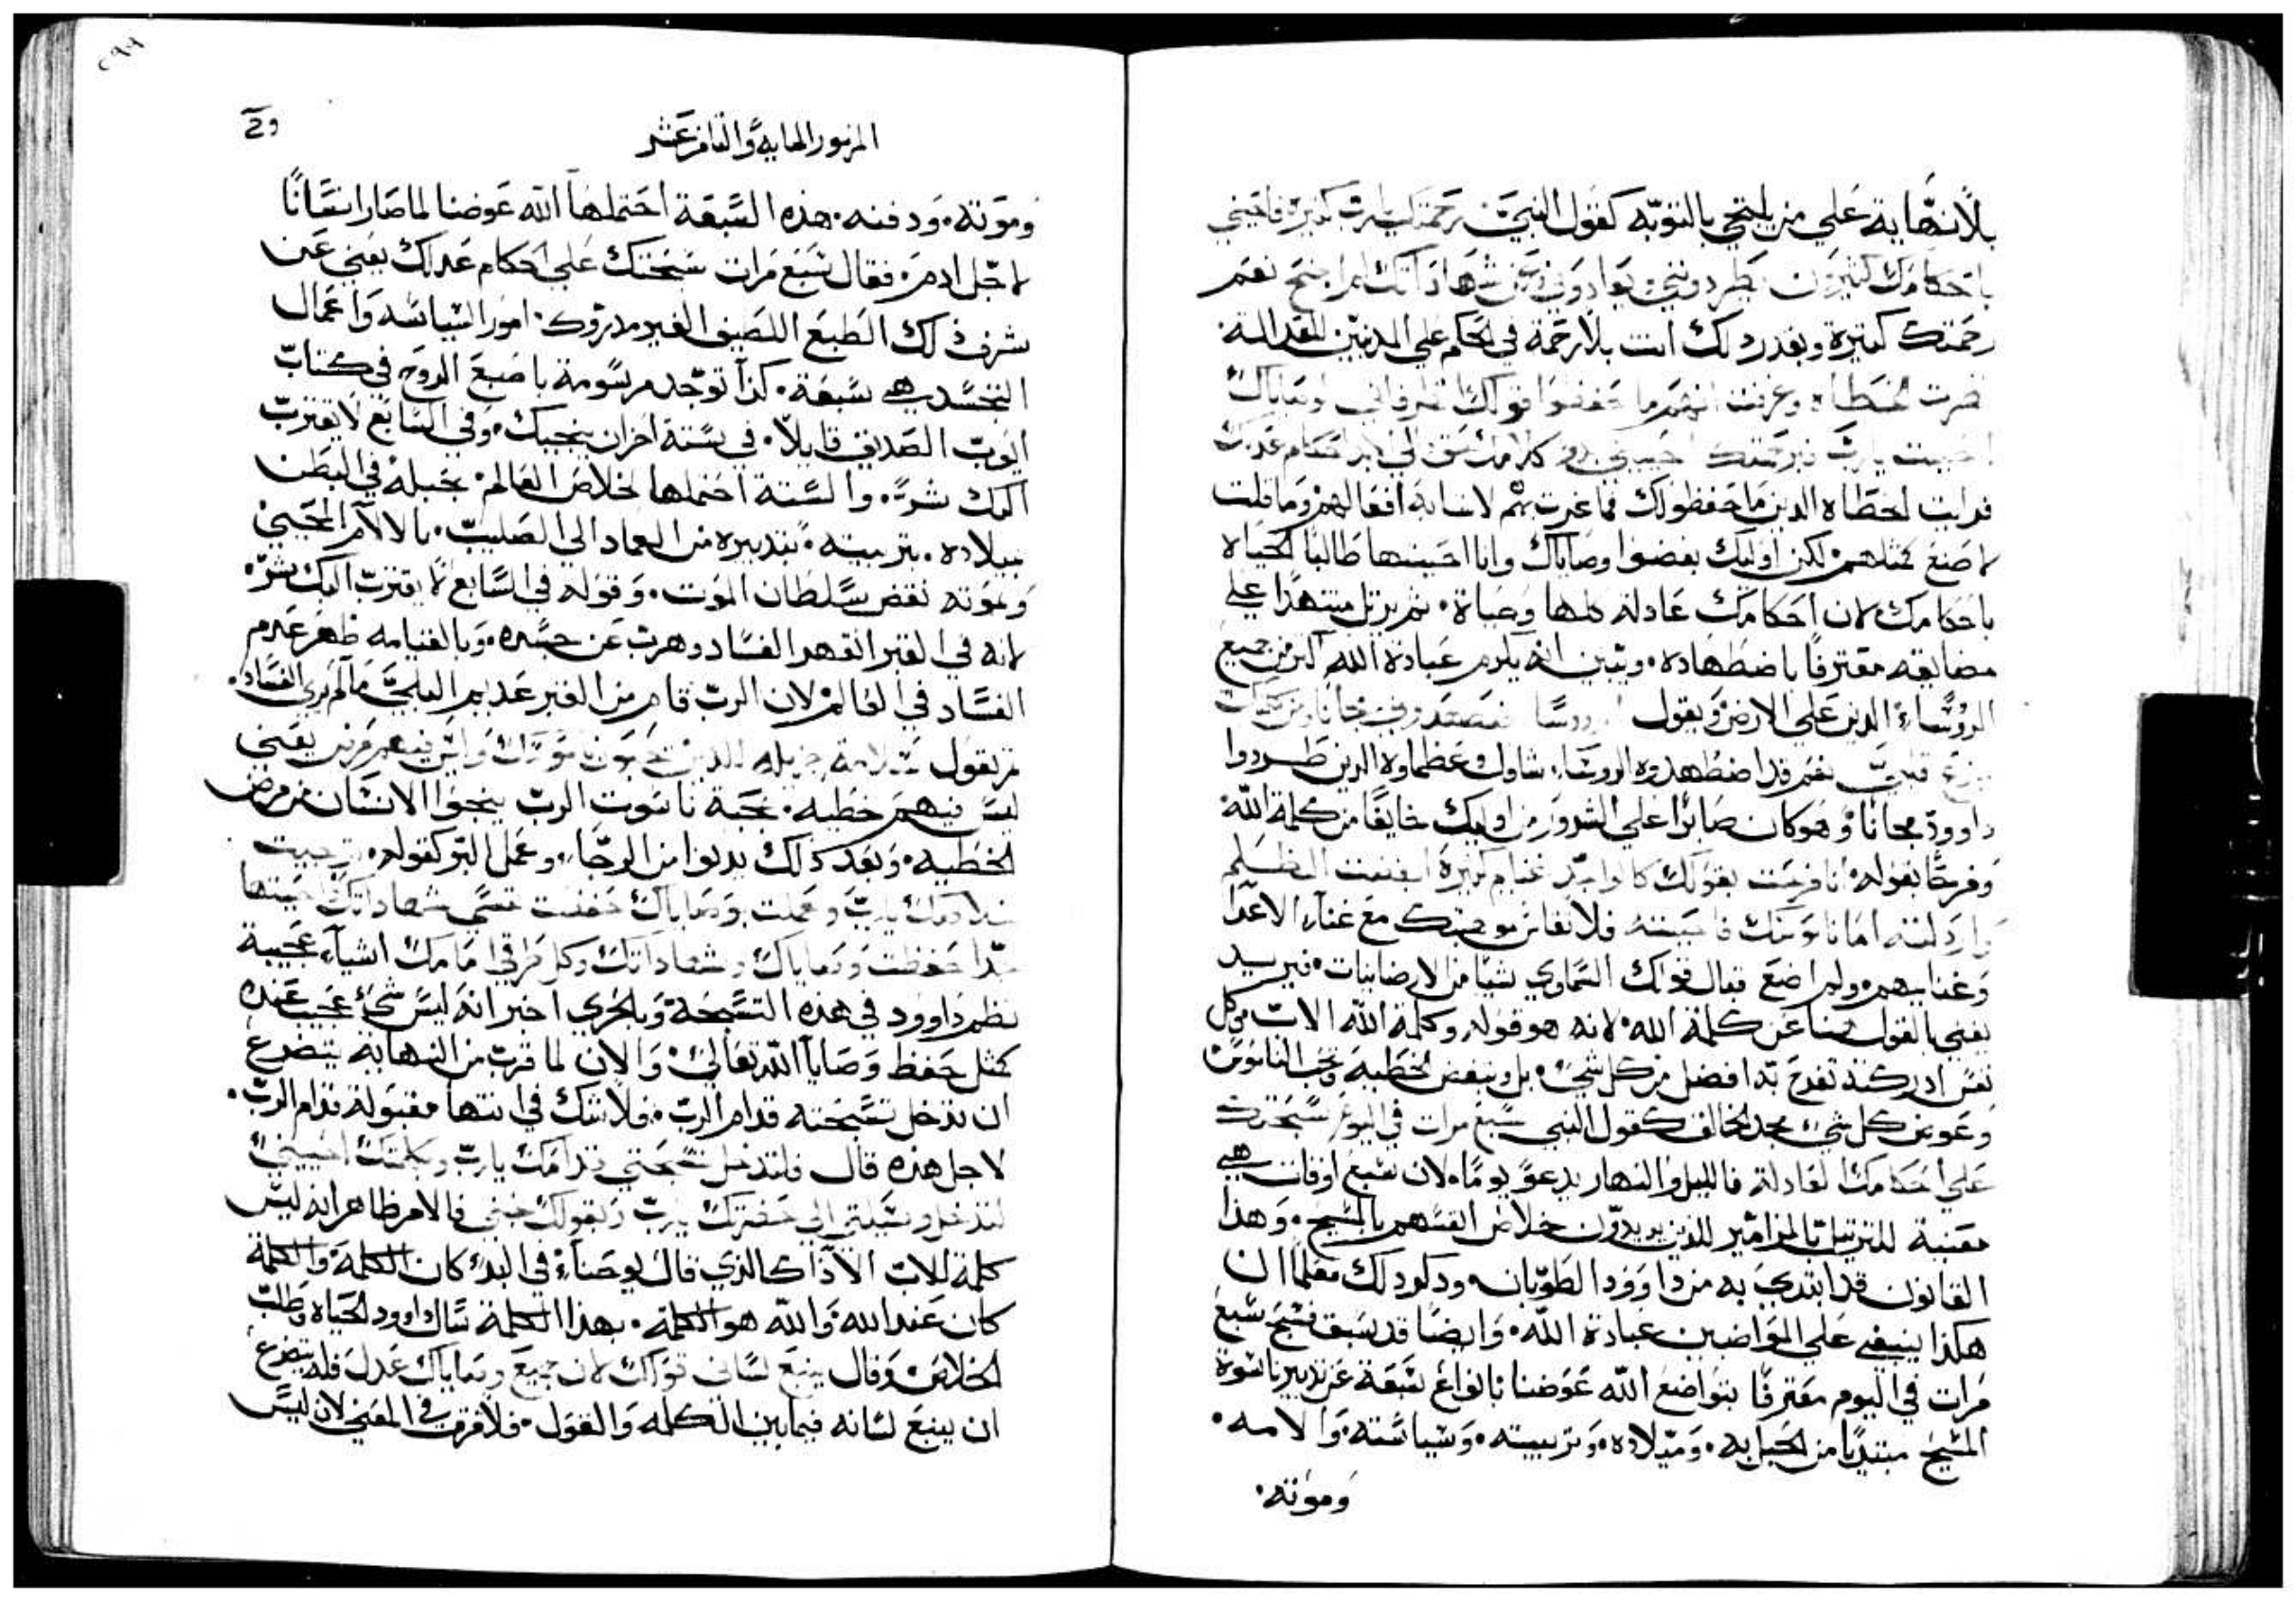 بلا نهاية على من يلتجي بالتوبه كقول النبي رحمتك يارب كثيرة فاحيني
باحكامك كثيرون يطردونني ويعادونني وعن شهاداتك لم اجنح نعم
رحمتك كثيرة وبعد ذلك انت بلا رحمة في الحكم علي المذنبين للعدالة.
نظرت الخطاه وعرفت انهم ما حفظوا اقوالك انظر فاني وصاياك
احببت يارب فبرحمتك احييني بدو كلامك حق والي الابد احكام عدلك
قد رايت الخطاه الذين ما حفظولك فما غرت بهم لاشابه افعالهم وما قلت
لاصنع كمثلهم لكن اوليك بغضوا وصاياك وانا احببتها طالبًا الحياه
باحكامك لان احكامك عادلة كلها وحياة. ثم يرتل مستهدًا علي
مضايقيه معترفًا باضطهاده. ويبين انه يكرم عبادة الله اكثر من جميع
الروساء الذين علي الارض ويقول الروسا اضطهدوني مجانًا ومن كلامك
جزع قلبي نعم قد اضطهدوه الروساء شاول وعظماوه الذين طردوا
داوود مجانًا وهو كان صابرًا علي الشرور من اوليك خايفًا من كلمة الله
وفرحًا بقوله انا فرحت بقولك كالواجد غنايم كثيرة ابغضت الظلم
وارذلته اما ناموسك فاحببته فلا تقاس موهبتك مع غناء الاعدا
وغنايمهم ولم اضع قبال قولك السماوي شيا من الارضانيات. فيريد
يعني بالقول هنا عن كلمة الله لانه هو قوله وكلمة الله الاب من كل
نفس ادركته تفرح به افضل من كل شي بل ويبغض الخطيه ويحب الناموس
وعوض كل شي يمجد الخالق كقول النبي سبع مرات في اليوم سبحتك
علي احكامك العادلة فالليل والنهار يدعو يومًا لان سبع اوقات هي
معينة للترتيل بالمزامير للذين يريدون خلاص انفسهم بالمسيح. وهذا
القانون قد ابتدي به من داوود الطوبان وذكر ذلك معلمًا ان
هكذا ينبغي علي المواضبين عبادة الله. وايضًا قد سبق فسبح سبع
مرات في اليوم معترفًا بتواضع الله عوضنا بانواع سبعة عن تدبير ناسوة
المسيح مبتديًا من الحبل به. وميلاده. وتربيته. وسياسته. والامه.
وموته.
٢٩٩
المزمور المايه والثامن عشر
وموته. ودفنه. هذه السبعة احتملها الله عوضنا لما صار انسانًا
لاجل ادم. فقال سبع مرات سبحتك علي احكام عدلك يعني عن
شرف ذلك الطبع اللطيف الغير مدروك. امور السياسه واعمال
التجسد هي سبعة. كذا توجد مرسومة باصبع الروح في كتاب
ايوب الصديق قايلاً. في ستة احزان ينجيك. وفي السابع لا يقترب
اليك شر. والستة احتملها لخلاص العالم. بحبله في البطن
بميلاده. بتربيته. بتدبيره من العماد الي الصليب. بالالام المحيي
وبموته نقض سلطان الموت. وقوله في السابع لا يقترب اليك شر.
لانه في القبر انقهر الفساد وهرب عن جسده. وبالقيامه ظهر عدم
الفساد في العالم لان الرب قام من القبر عديم البلي ما لم يري الفساد.
ثم يقول سلامة جزيله للذين يحبون ناموسك وليس فيهم مرض يعني
ليس فيهم خطيه. محبة ناموس الرب ينجوا الانسان من مرض
الخطيه. وبعد ذلك يدنوا من الرجاء. وعمل البر كقوله. ترجيت
خلاصك يارب وعملت بوصاياك حفظت نفسي شهاداتك واحبتها
جدًا حفظت وصاياك وشهاداتك وكل طرقي امامك اشياء عجيبة
نظم داوود في هذه التسبحة وبالحري اخبر انه ليس شي عجيب عنده
كمثل حفظ وصايا الله تعالي والان لما قرب من النهاية يتضرع
ان تدخل تسبحته قدام الرب. فلا شك في انتها مقبولة قدام الرب.
لاجل هذه قال فلتدخل تسبحتي قدامك يارب وبكلمتك احييني
لتدخل وسيلتي الي حضرتك يارب وبقولك نجني فالامر ظاهر انه ليس
كلمة للاب الا ذاك الذي قال يوحناء في البدء كان الكلمة والكلمة
كان عند الله والله هو الكلمة. بهذا الكلمة سال داوود الحياه وطلب
الخلاص وقال ينبع لساني قولك لان جميع وصاياك عدل فله يتضرع
ان ينبع لسانه فيما بين الكلمه والقول. فلا فرق في المعني لان ليس